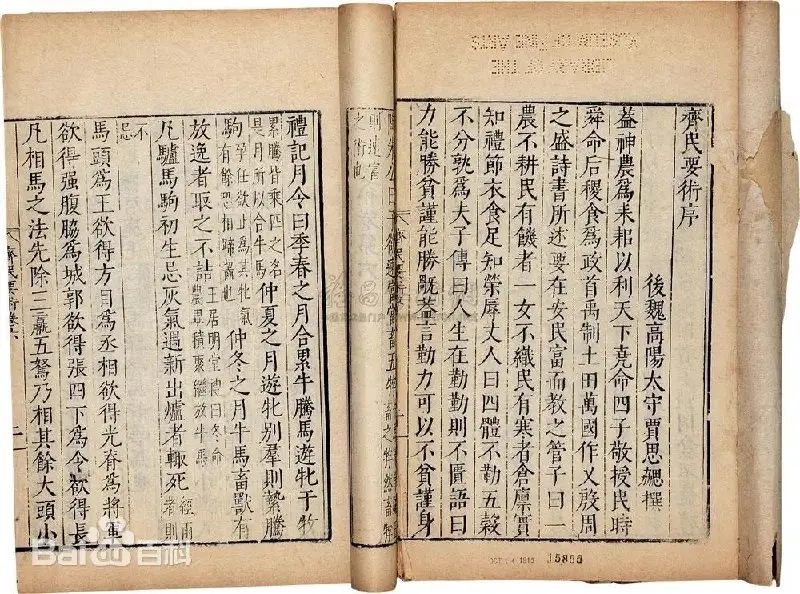 齊民要術序
後魏高陽太守賈思勰撰
蓋神農爲耒耜以利天下堯命四子敬授民時
舜命后稷食爲政首禹制土田萬國作乂殷周
之盛詩書所述要在安民富而教之管子曰一
農不耕民有饑者一女不織民有寒者倉廩實
知禮節衣食足知榮辱丈人曰四體不勤五穀
不分孰爲夫子傳曰人生在勤勤則不匱語曰
力能勝貧謹能勝禍蓋言勤力可以不貧謹身
禮記月令曰季春之月合累牛騰馬遊牝于牧
累騰皆乘匹之名是月所以合牛馬仲夏之月遊牝别羣則縶騰
駒孕任欲止爲其牝氣有餘恐相蹄齧也仲冬之月牛馬畜獸有
放逸者取之不詰王居明堂禮曰冬命農畢積聚繼放牛馬
凡驢馬駒初生忌灰氣遇新出爐者輒死經雨者則
不忌
馬頭爲王欲得方目爲丞相欲得光脊爲將軍
欲得强腹脇爲城郭欲得張四下爲令欲得長
凡相馬之法先除三羸五駑乃相其餘大頭小
齊民要術卷六
LIBRARY OF THE
MUSEUM OF FINE ARTS
15855
Bai 百科